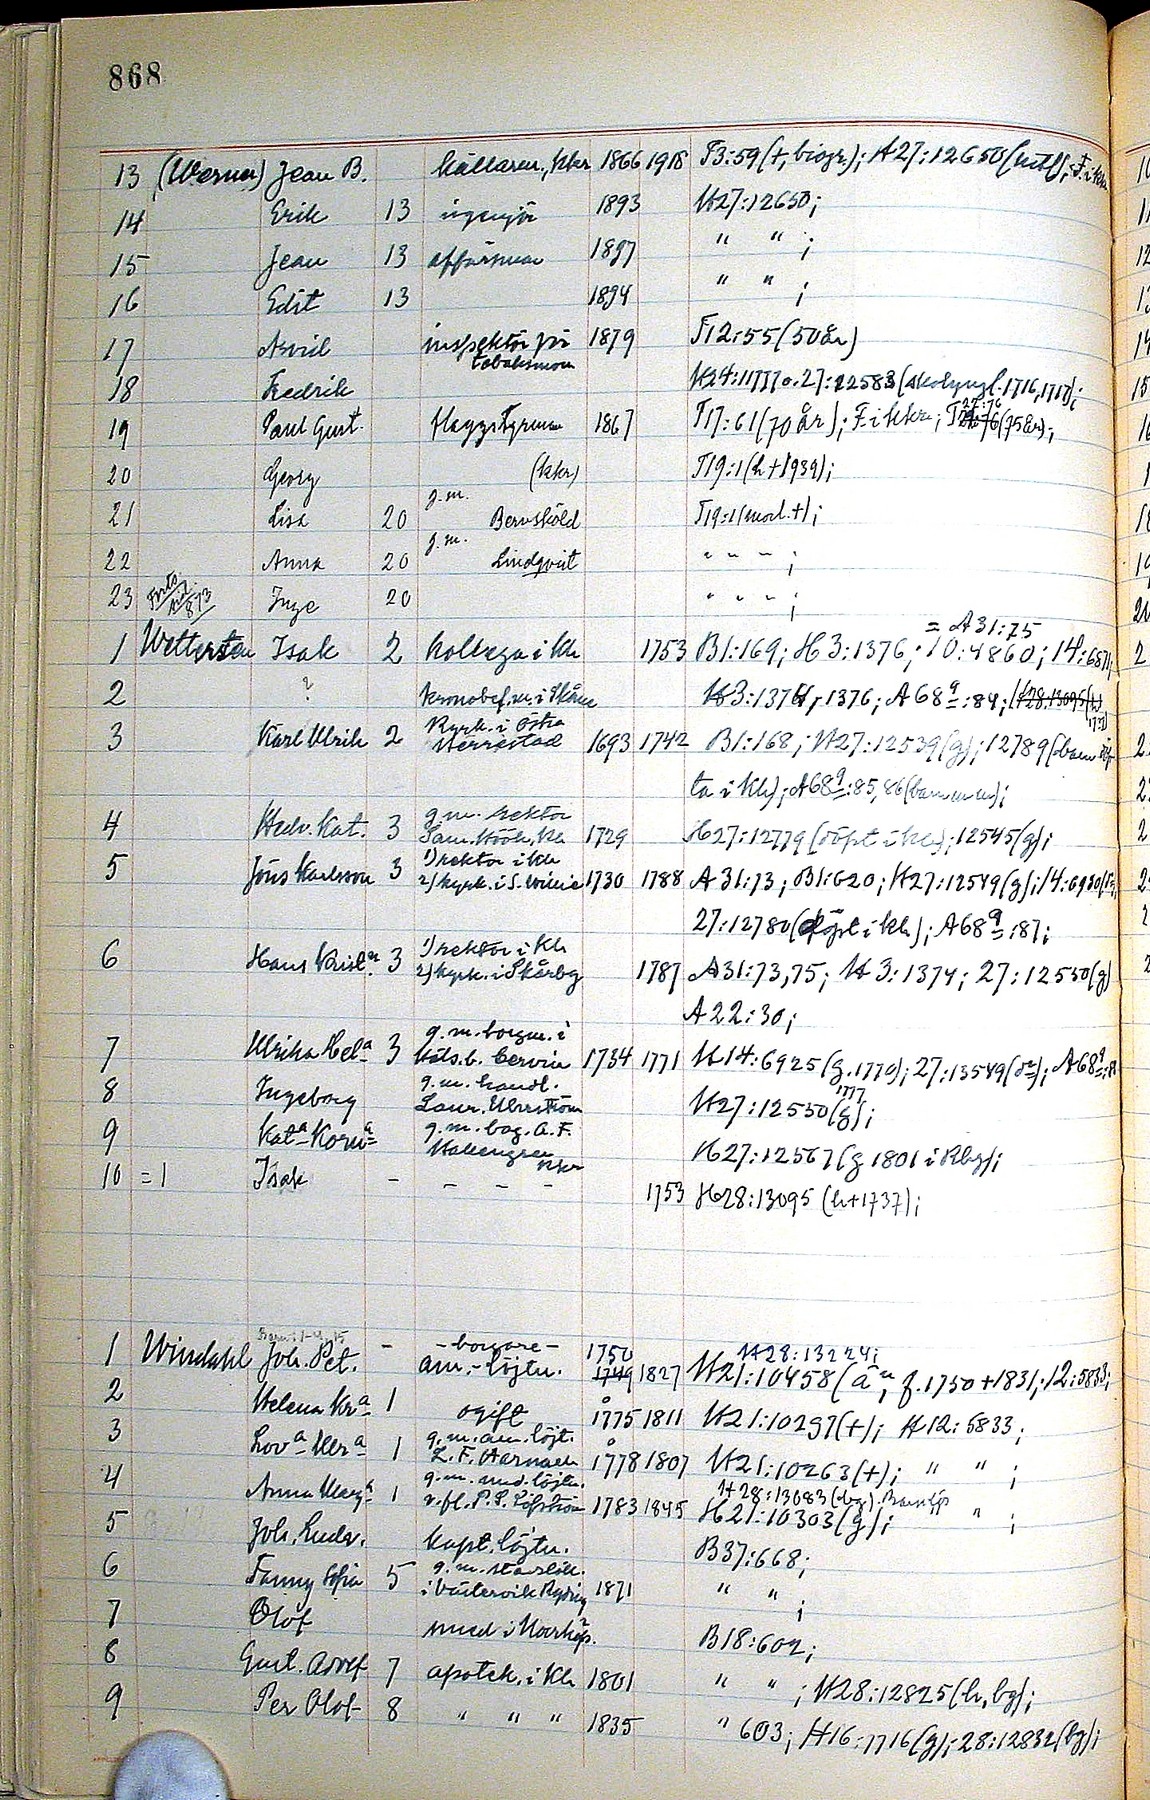 868
13 (Werner) Jean B. källarm., kkr 1866 1918 T3:59 (+, biogr.); H27:12650
14 Erik 13 ingenjör 1893 H27:12650;
15 Jean 13 affärsman 1897 " " ;
16 Edit 13 1894 " " ;
17 Arvid inspektör för tobaksmon 1879 T12:55 (50 år)
18 Fredrik H24:11770. 27:12583 (skolyngl. 1716, 1717);
19 Paul Gust. flaggstyrman 1867 T17:61 (70 år); F. i kkr; (75 år);
20 Georg (kkr) T19:1 (h+1939);
21 Lisa 20 g.m. Bernsköld T19:1 (mod. +);
22 Anna 20 g.m. Lindqvist " " " ;
23 Forts sid 873 Inge 20 " " " ;
= A31:75
1 Wettersten Isak 2 kollega i kh 1753 B1:169; H3:1376; 10:4860; 14:6871;
2 ? kronobef.m. i Skåne H3:1374, 1376; A68ª:84;
3 Karl Ulrik 2 kyrk. i Östra Herrestad 1693 1742 B1:168; H27:12539 (g); 12789 (barn döp-
ta i kh); A68ª:85, 86
4 Hedv. Kat. 3 g.m. rektor Sam. Höök, kh 1729 H27:12779 (döpt i kh); 12545 (g);
5 Jöns Karlsson 3 1) rektor i kh 2) kyrk. i S. Mellie 1730 1788 A31:73; B1:620; H27:12549 (g); 14:6930
27:12780 (döpt i kh); A68ª:87;
6 Hans Krisn. 3 1) rektor i kh 2) kyrk. i Skårby 1787 A31:73, 75; H3:1374; 27:12530 (g)
A22:30;
7 Ulrika Hela 3 g.m. borgm. i Häls.b. Cervin 1734 1771 H14:6925 (g. 1770); 27:13549 (dº); A68ª:
8 Ingeborg g.m. handl. Laur. Ulrström H27:12530 (g); 1777
9 Kata Korna g.m. bag. A.F. kkr H27:12567 (g 1801 i Kbg);
10 =1 Isak - - - - - 1753 H28:13095 (h+1737);
1 Windahl Joh. Pet. - - borgare - am.-löjtn. 1750 1749 1827 H28:13224; H21:10458 (f. 1750 +1831; 12:5833;
2 Helena Kra 1 ogift 1775 1811 H21:10297 (+); H12:5833;
3 Lova Ulra 1 g.m. am. löjt. L.F. Aarnach 1778 1807 H21:10263 (+); " " ;
4 Anna Marga 1 g.m. und. löjtn. v. fl. P.S. Löfström 1783 1845 H28:13083 H21:10303 (g); " ;
5 Joh. Ludv. kapt. löjtn. B37:668;
6 Fanny Sofia 5 g.m. i Västervik Rydin 1871 " " ;
7 Olof smed i Norrköp. B18:602;
8 Gust. Adolf 7 apotek. i kh 1801 " " ; H28:12825 (h, bg);
9 Per Olof 8 " " " 1835 " 603; H16:7716 (g); 28:12832 (bg);